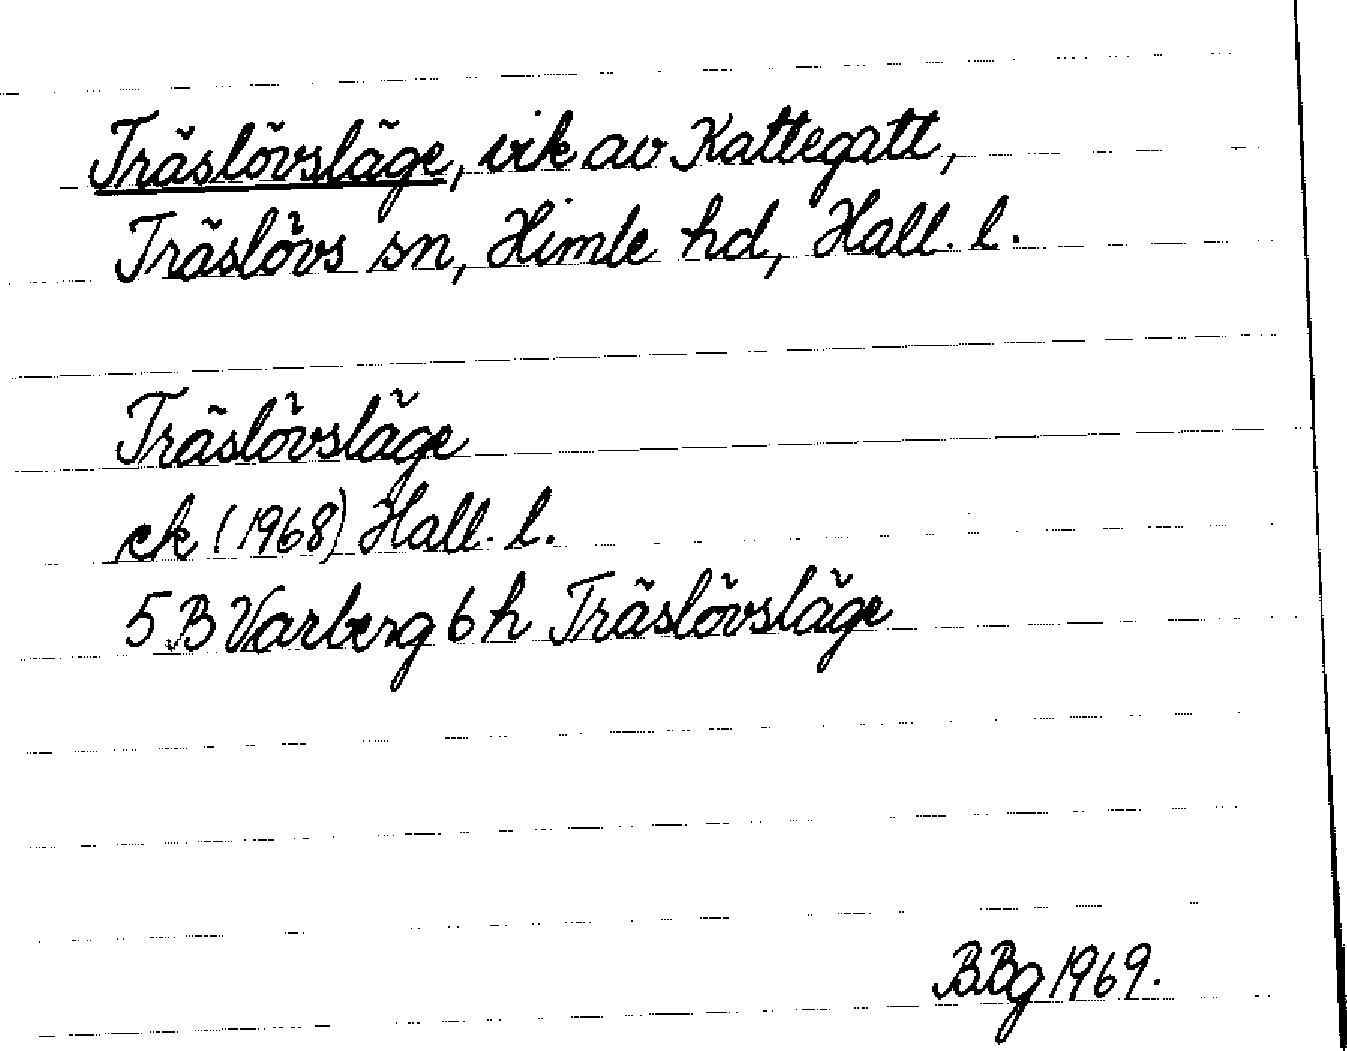 Träslövsläge, vik av Kattegatt,
Träslövs sn, Himle hd, Hall. l.
Träslövsläge
ek (1968) Hall. l.
5 B Varberg 6 h Träslövsläge
BBg 1969.